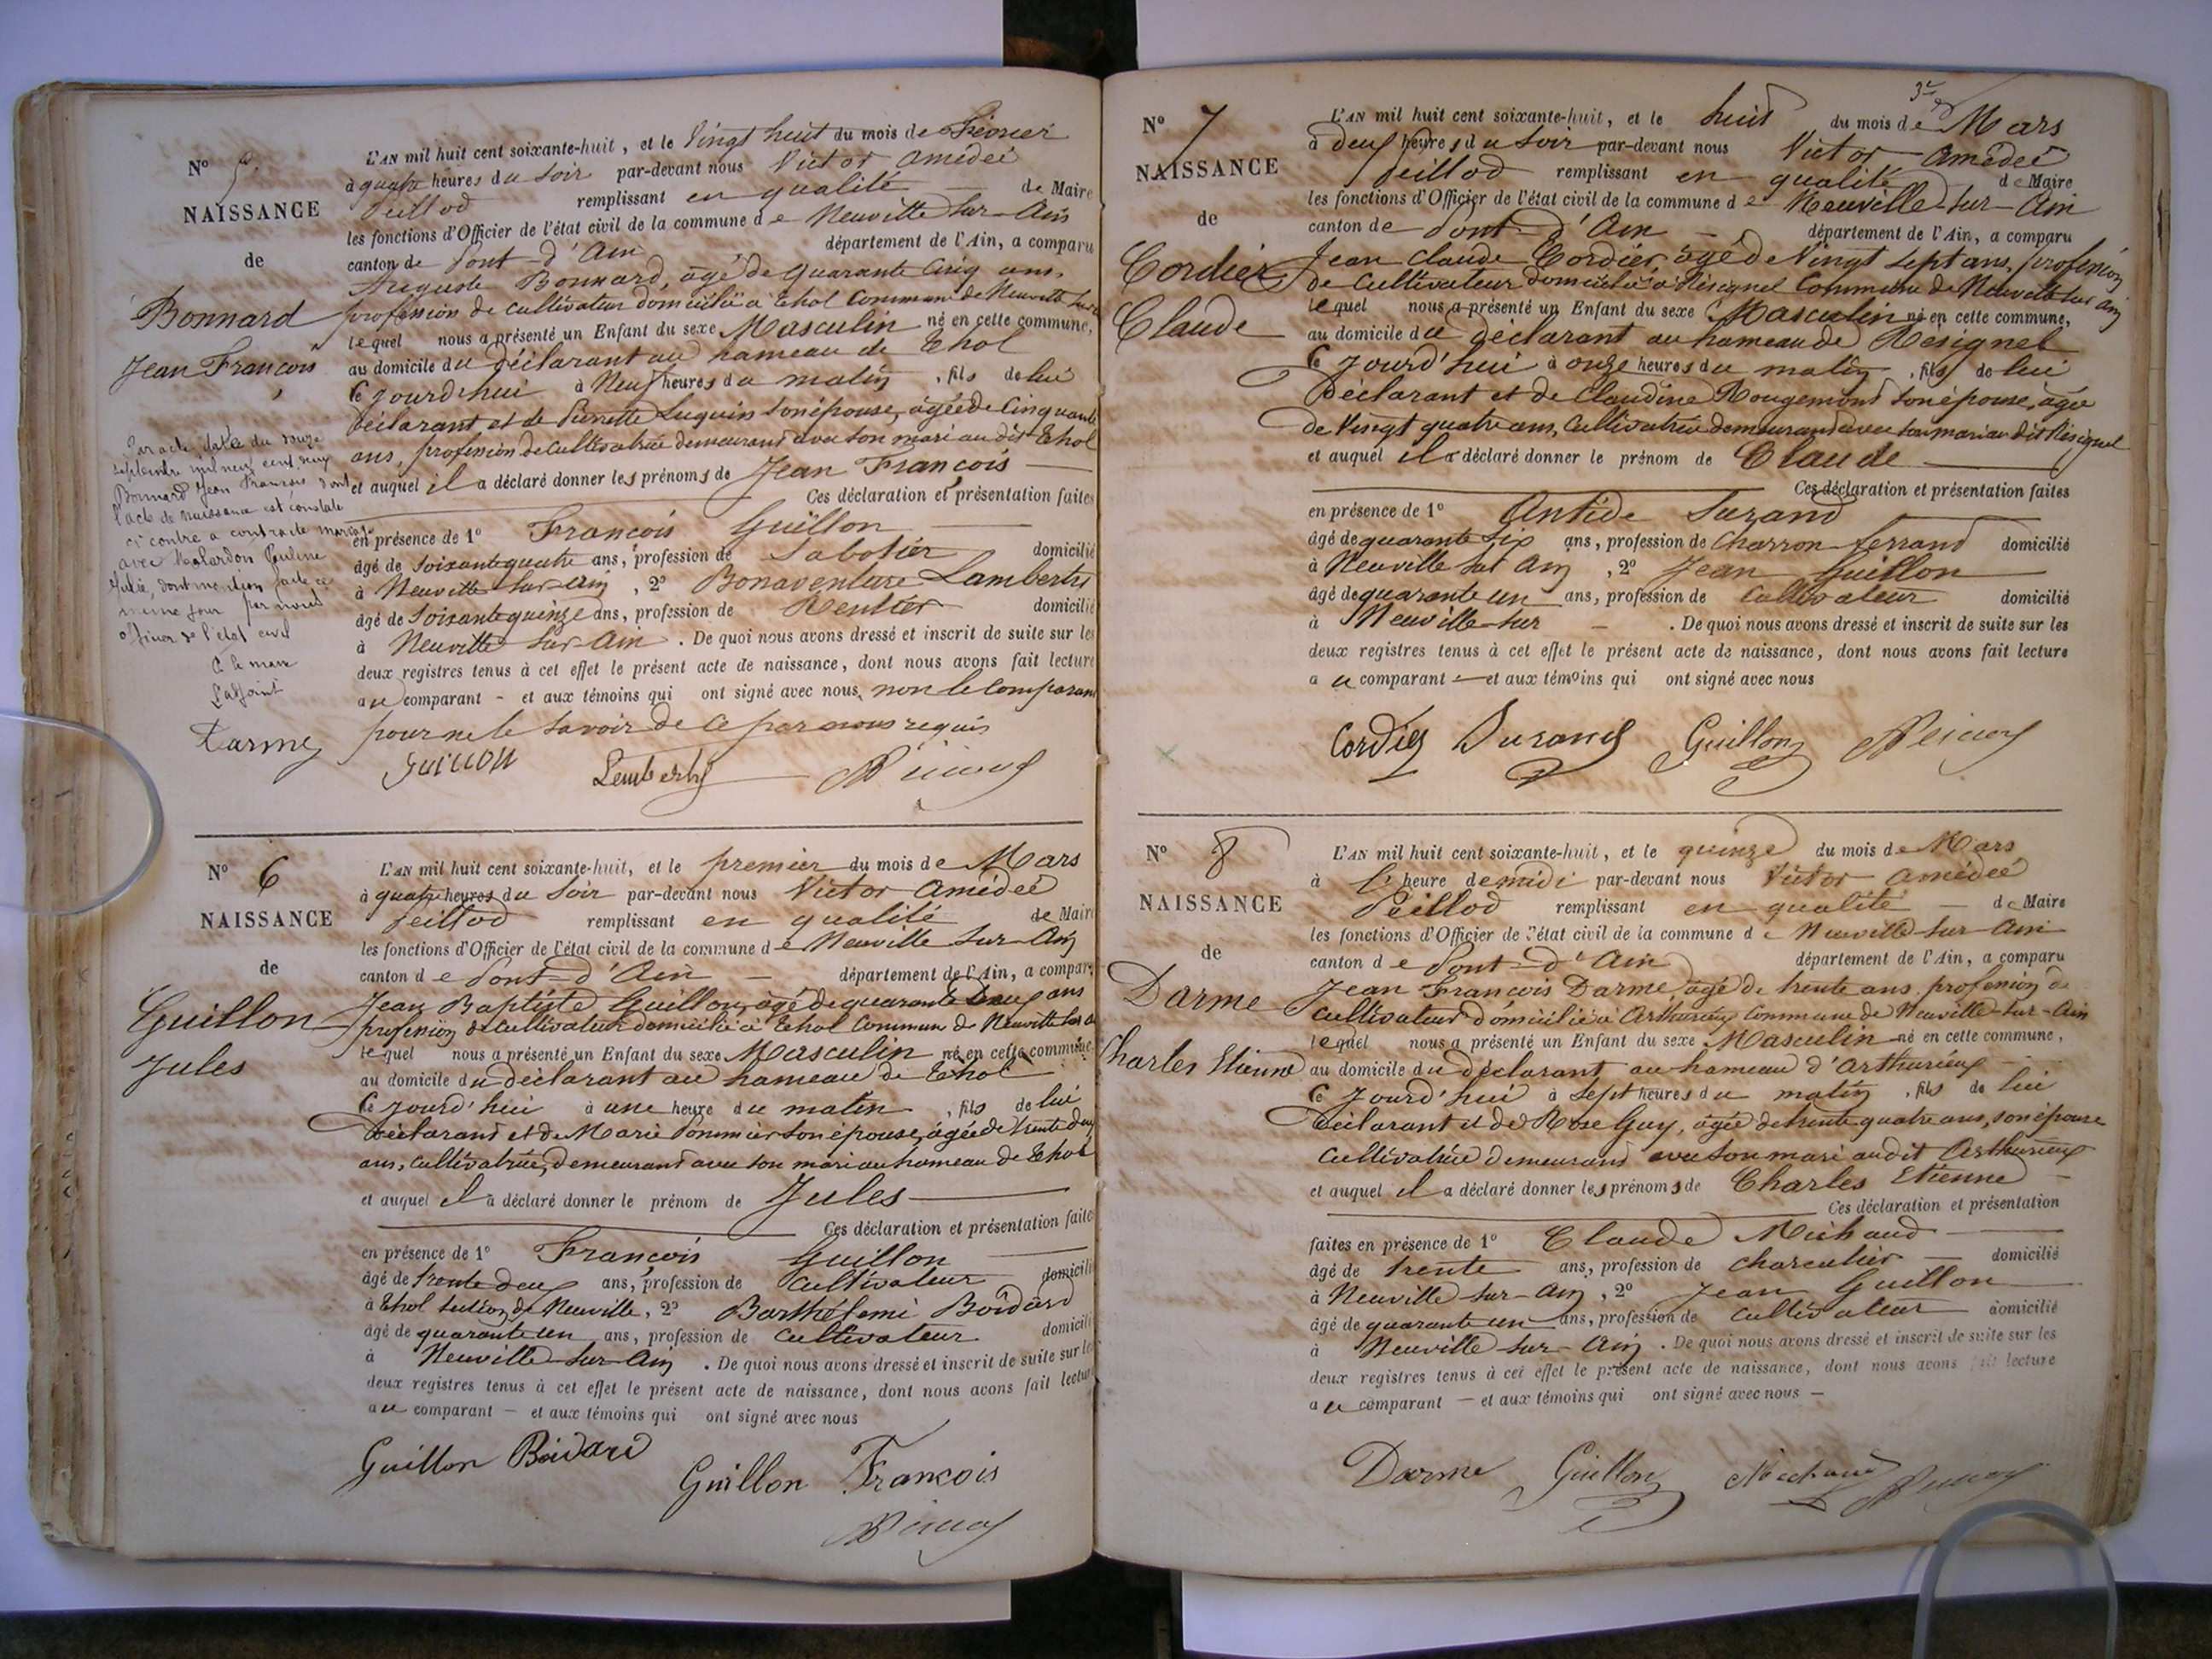 N° 5
NAISSANCE
de
Bonnard
Jean François
L'AN mil huit cent soixante-huit, et le Vingt huit du mois de Février
à quatre heures du Soir par-devant nous Victor Amédeé
Peillod remplissant en qualité — de Maire
les fonctions d'Officier de l'état civil de la commune de Neuville Sur-Ain
canton de Pont-d'Ain département de l'Ain, a comparu
Auguste Bonnard, âgé de quarante Cinq ans,
profession de cultivateur domicilié à Thol Commune de Neuville Sur
lequel nous a présenté un Enfant du sexe Masculin né en cette commune,
au domicile du déclarant au hameau de Thol
Ce jourd'hui à Neuf heures du matin, fils de lui
déclarant et de Pierrette Luquin son épouse, âgée de Cinquante
ans, profession de Cultivatrice demeurant avec son mari au dit Thol
et auquel il a déclaré donner les prénoms de Jean François —
Ces déclaration et présentation faites
en présence de 1° François Guillon
âgé de Soixante quatre ans, profession de Sabotier domicilié
à Neuville Sur-Ain, 2° Bonaventure Lamberty
âgé de Soixante quinze ans, profession de Rentier domicilié
à Neuville Sur-Ain. De quoi nous avons dressé et inscrit de suite sur les
deux registres tenus à cet effet le présent acte de naissance, dont nous avons fait lecture
au comparant - et aux témoins qui ont signé avec nous, non le comparant
pour ne le savoir de ce par nous requis
Guillon Lamberty
Par acte daté du douze
septembre mil neuf cent neuf
Bonnard Jean François dont
l'acte de naissance est constaté
ci contre a contracté mariage
avec Pauline
Julie, dont mention faite ce
même jour par nous
officier de l'état civil
P le maire
L'adjoint
Darme
N° 6
NAISSANCE
de
Guillon
Jules
L'AN mil huit cent soixante-huit, et le premier du mois de Mars
à quatre heures du Soir par-devant nous Victor Amédeé
Peillod remplissant en qualité de Maire
les fonctions d'Officier de l'état civil de la commune de Neuville Sur-Ain
canton de Pont-d'Ain — département de l'Ain, a comparu
Jean Baptiste Guillon, âgé de quarante Deux ans
profession de Cultivateur domicilié à Thol Commune de Neuville Sur Ain
lequel nous a présenté un Enfant du sexe Masculin né en cette commune,
au domicile du déclarant au hameau de Thol
Ce jourd'hui à une heure du matin, fils de lui
Déclarant et de Marie Pommier son épouse, âgée de trente deux
ans, Cultivatrice, demeurant avec son mari au hameau de Thol
et auquel il a déclaré donner le prénom de Jules —
Ces déclaration et présentation faites
en présence de 1° François Guillon
âgé de trente deux ans, profession de Cultivateur domicilié
à Thol section de Neuville, 2° Barthélemi Boidard
âgé de quarante un ans, profession de Cultivateur domicilié
à Neuville Sur-Ain. De quoi nous avons dressé et inscrit de suite sur les
deux registres tenus à cet effet le présent acte de naissance, dont nous avons fait lecture
au comparant — et aux témoins qui ont signé avec nous
Guillon Boidard Guillon François
3e
N° 7
NAISSANCE
de
Cordier
Claude
L'AN mil huit cent soixante-huit, et le huit du mois de Mars
à deux heures du Soir par-devant nous Victor Amédeé
Peillod remplissant en qualité de Maire
les fonctions d'Officier de l'état civil de la commune de Neuville-sur-Ain
canton de Pont-d'Ain — département de l'Ain, a comparu
Jean Claude Cordier, âgé de Vingt Sept ans, profession
de Cultivateur domicilié à Résignel Commune de Neuville sur Ain
lequel nous a présenté un Enfant du sexe Masculin né en cette commune,
au domicile du déclarant au hameau de Résignel
Ce jourd'hui à onze heures du matin, fils de lui
Déclarant et de Claudine Rougemont son épouse, âgée
de Vingt quatre ans, Cultivatrice demeurant avec son mari au dit Résignel
et auquel il a déclaré donner le prénom de Claude —
Ces déclaration et présentation faites
en présence de 1° Antide Durand
âgé de quarante Six ans, profession de Charron ferrant domicilié
à Neuville Sur Ain, 2° Jean Guillon
âgé de quarante un ans, profession de Cultivateur domicilié
à Neuville-sur — . De quoi nous avons dressé et inscrit de suite sur les
deux registres tenus à cet effet le présent acte de naissance, dont nous avons fait lecture
au comparant — et aux témoins qui ont signé avec nous
Cordier Durand Guillon
N° 8
NAISSANCE
de
Darme
Charles Etienne
L'AN mil huit cent soixante-huit, et le quinze du mois de Mars
à l' heure de midi par-devant nous Victor Amédeé
Peillod remplissant en qualité — de Maire
les fonctions d'Officier de l'état civil de la commune de Neuville-sur-Ain
canton de Pont-d'Ain département de l'Ain, a comparu
Jean François Darme, âgé de trente ans, profession de
Cultivateur domicilié à Arthurieux Commune de Neuville-sur-Ain
lequel nous a présenté un Enfant du sexe Masculin né en cette commune,
au domicile du déclarant au hameau d'Arthurieux
Ce jourd'hui à Sept heures du matin, fils de lui
Déclarant et de Rose Guy, âgée de trente quatre ans, son épouse
Cultivatrice demeurant avec son mari au dit Arthurieux
et auquel il a déclaré donner les prénoms de Charles Etienne —
Ces déclaration et présentation
faites en présence de 1° Claude Michaud
âgé de trente ans, profession de charcutier — domicilié
à Neuville-sur-Ain, 2° Jean Guillon
âgé de quarante un ans, profession de Cultivateur domicilié
à Neuville-sur-Ain. De quoi nous avons dressé et inscrit de suite sur les
deux registres tenus à cet effet le présent acte de naissance, dont nous avons fait lecture
au comparant — et aux témoins qui ont signé avec nous —
Darme Guillon Michaud